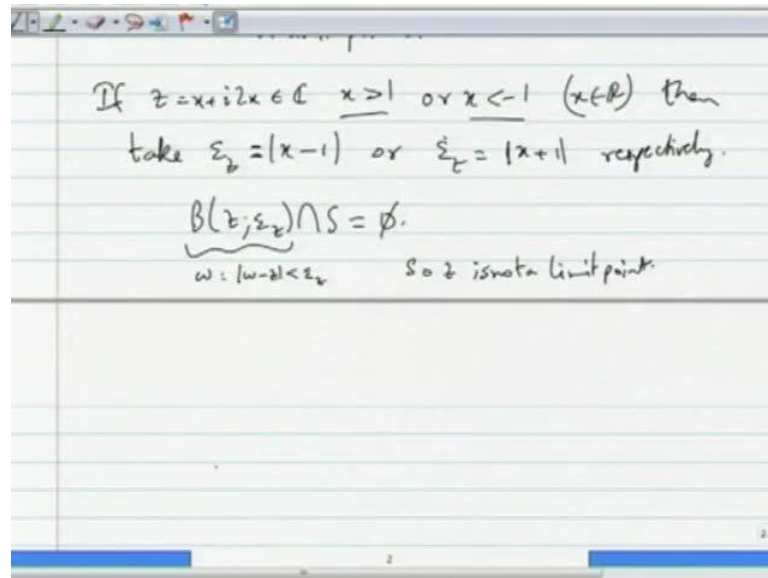 If z = x + i2x ∈ ℂ x > 1 or x < -1 (x ∈ ℝ) then
take ε_z = |x - 1| or ε_z = |x + 1| respectively.
B(z; ε_z) ∩ S = ∅.
w : |w - z| < ε_z So z is not a limit point.
2
2